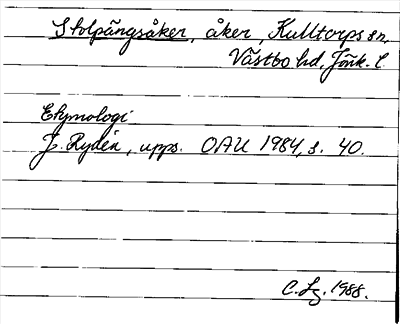 Stolpängsåker, åker, Kulltorps sn,
Västbo hd, Jönk. l.
Etymologi
J. Rydén, upps. OAU 1984, s. 40.
C. Lg. 1988.